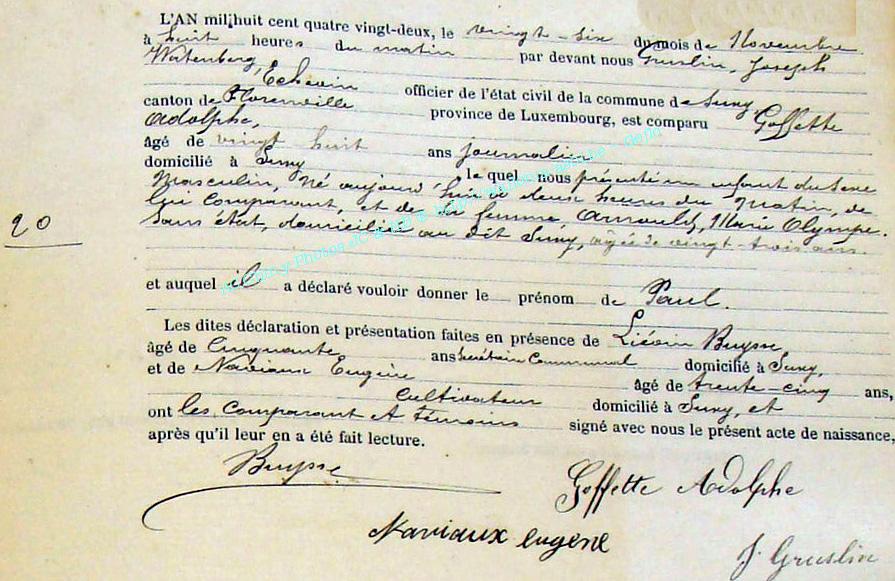 L'AN mil huit cent quatre vingt-deux, le vingt-six du mois de Novembre
à huit heures du matin par devant nous Gruslin, Joseph
Watenberg, Echevin officier de l'état civil de la commune de Suny,
canton de Florenville province de Luxembourg, est comparu Goffette
Adolphe,
âgé de vingt huit ans journalier
domicilié à Suny le quel nous présente un enfant du sexe
Masculin, né aujourd'hui à deux heures du Matin, de
lui comparant, et de sa femme Arnould, Marie Olympe.
Sans état, domiciliée au dit Suny, âgée de vingt-trois ans.
20
et auquel il a déclaré vouloir donner le prénom de Paul.
Les dites déclaration et présentation faites en présence de Liévin Buysse
âgé de Cinquante ans Secrétaire Communal domicilié à Suny,
et de Naviaux Eugène âgé de trente-cinq ans,
cultivateur domicilié à Suny, et
ont les Comparant et témoins signé avec nous le présent acte de naissance,
après qu'il leur en a été fait lecture.
Buysse
Goffette Adolphe
Naviaux eugene
J. Gruslin